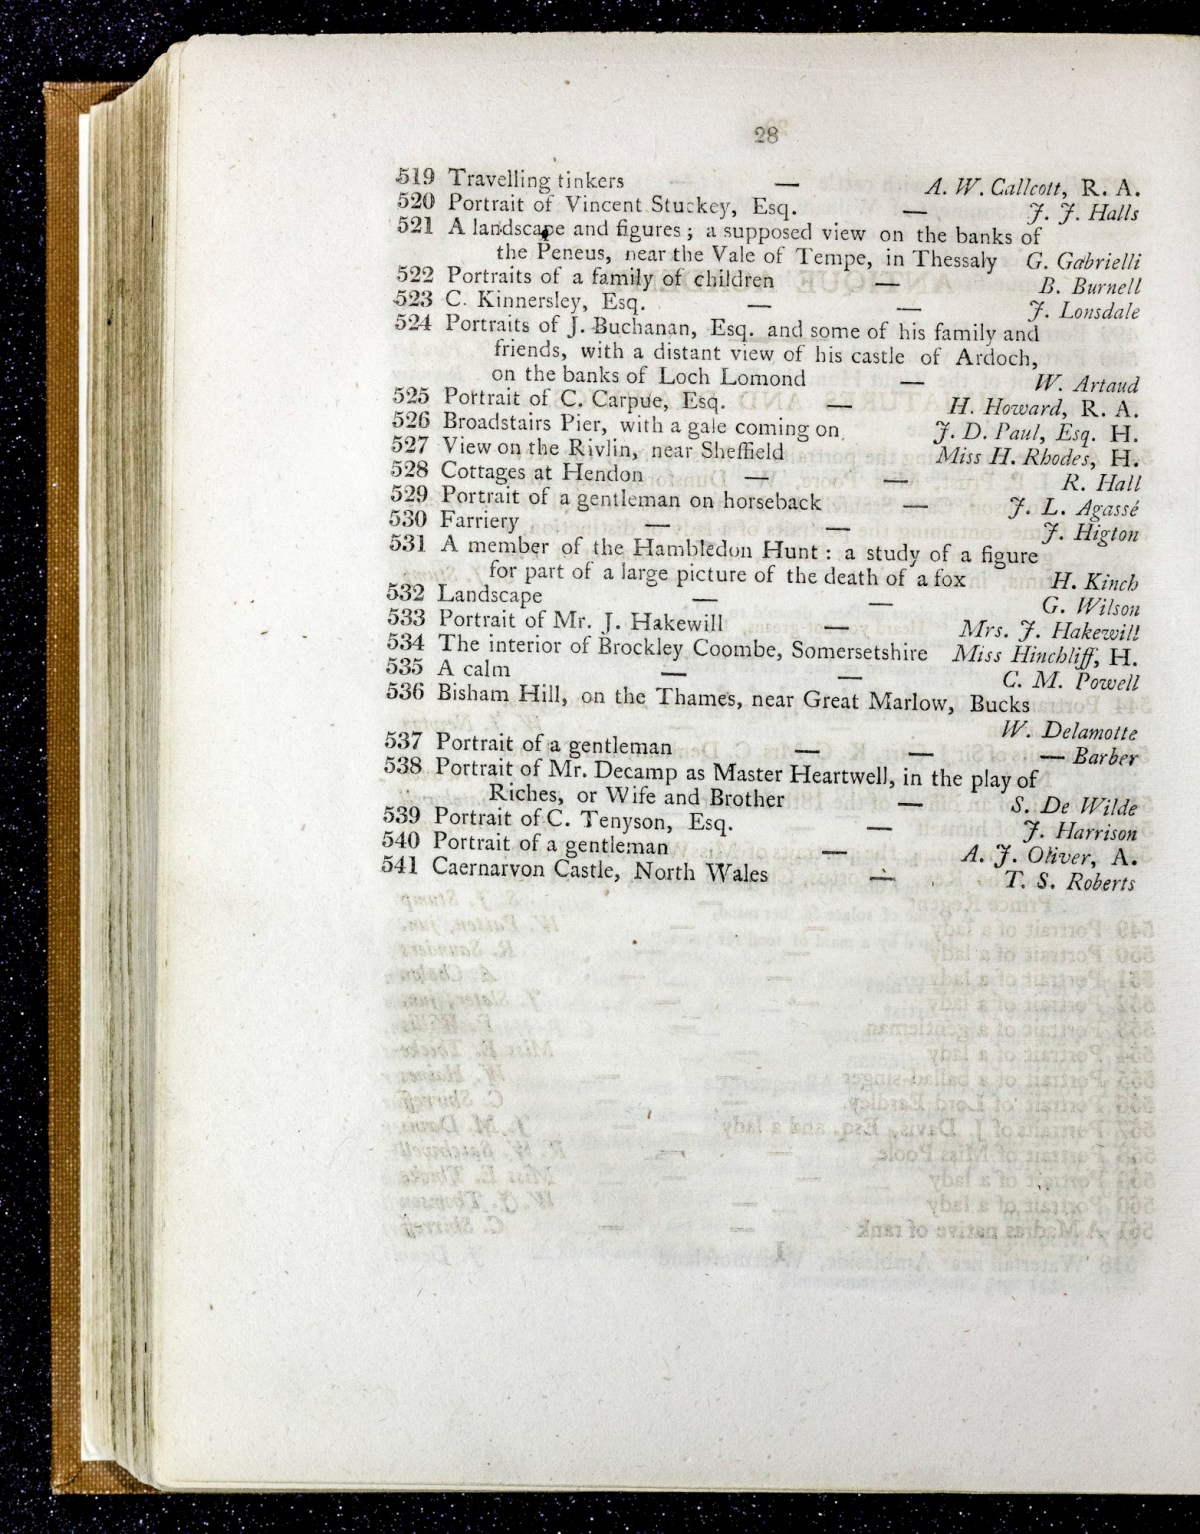 28
519 Travelling tinkers — A. W. Callcott, R. A.
520 Portrait of Vincent Stuckey, Esq. — J. J. Halls
521 A landscape and figures; a supposed view on the banks of
the Peneus, near the Vale of Tempe, in Thessaly G. Gabrielli
522 Portraits of a family of children — B. Burnell
523 C. Kinnersley, Esq. — — J. Lonsdale
524 Portraits of J. Buchanan, Esq. and some of his family and
friends, with a distant view of his castle of Ardoch,
on the banks of Loch Lomond — W. Artaud
525 Portrait of C. Carpue, Esq. — H. Howard, R. A.
526 Broadstairs Pier, with a gale coming on J. D. Paul, Esq. H.
527 View on the Rivlin, near Sheffield Miss H. Rhodes, H.
528 Cottages at Hendon — — R. Hall
529 Portrait of a gentleman on horseback — J. L. Agassé
530 Farriery — — J. Higton
531 A member of the Hambledon Hunt: a study of a figure
for part of a large picture of the death of a fox H. Kinch
532 Landscape — — G. Wilson
533 Portrait of Mr. J. Hakewill — Mrs. J. Hakewill
534 The interior of Brockley Coombe, Somersetshire Miss Hinchliff, H.
535 A calm — — C. M. Powell
536 Bisham Hill, on the Thames, near Great Marlow, Bucks
W. Delamotte
537 Portrait of a gentleman — — — Barber
538 Portrait of Mr. Decamp as Master Heartwell, in the play of
Riches, or Wife and Brother — S. De Wilde
539 Portrait of C. Tenyson, Esq. — J. Harrison
540 Portrait of a gentleman — A. J. Oliver, A.
541 Caernarvon Castle, North Wales — T. S. Roberts